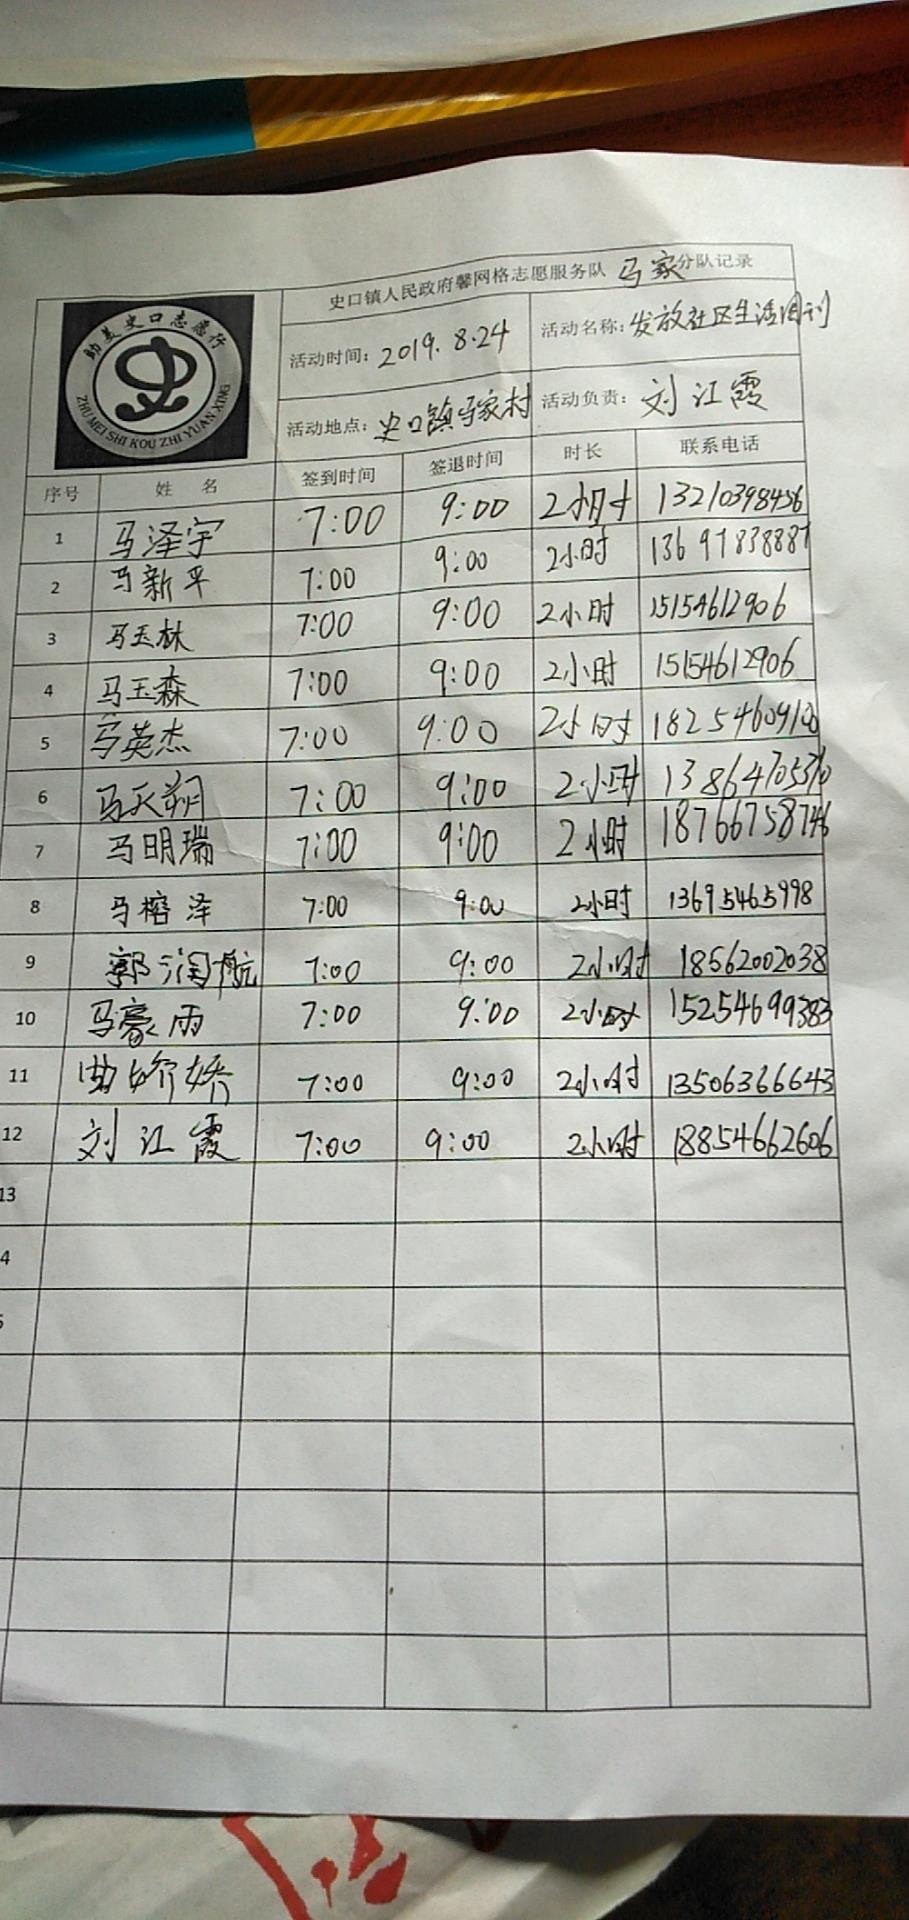 史口镇人民政府馨网格志愿服务队 马家分队记录
助美史口志愿行
ZHU MEI SHI KOU ZHI YUAN XING
活动时间：2019.8.24 活动名称：发放社区生活周刊
活动地点：史口镇马家村 活动负责：刘江霞
序号 姓名 签到时间 签退时间 时长 联系电话
1 马泽宇 7:00 9:00 2小时 13210398456
2 马新平 7:00 9:00 2小时
3 马玉林 7:00 9:00 2小时 15154612906
4 马玉森 7:00 9:00 2小时 15154612906
5 马英杰 7:00 9:00 2小时 18254609100
6 马天朔 7:00 9:00 2小时 13864705370
7 马明瑞 7:00 9:00 2小时 18766758746
8 马榕泽 7:00 9:00 2小时 13695465998
9 郭润航 7:00 9:00 2小时 18562002038
10 马豪雨 7:00 9:00 2小时 15254699383
11 曲娇娇 7:00 9:00 2小时 13506366643
12 刘江霞 7:00 9:00 2小时 18854662606
13
4